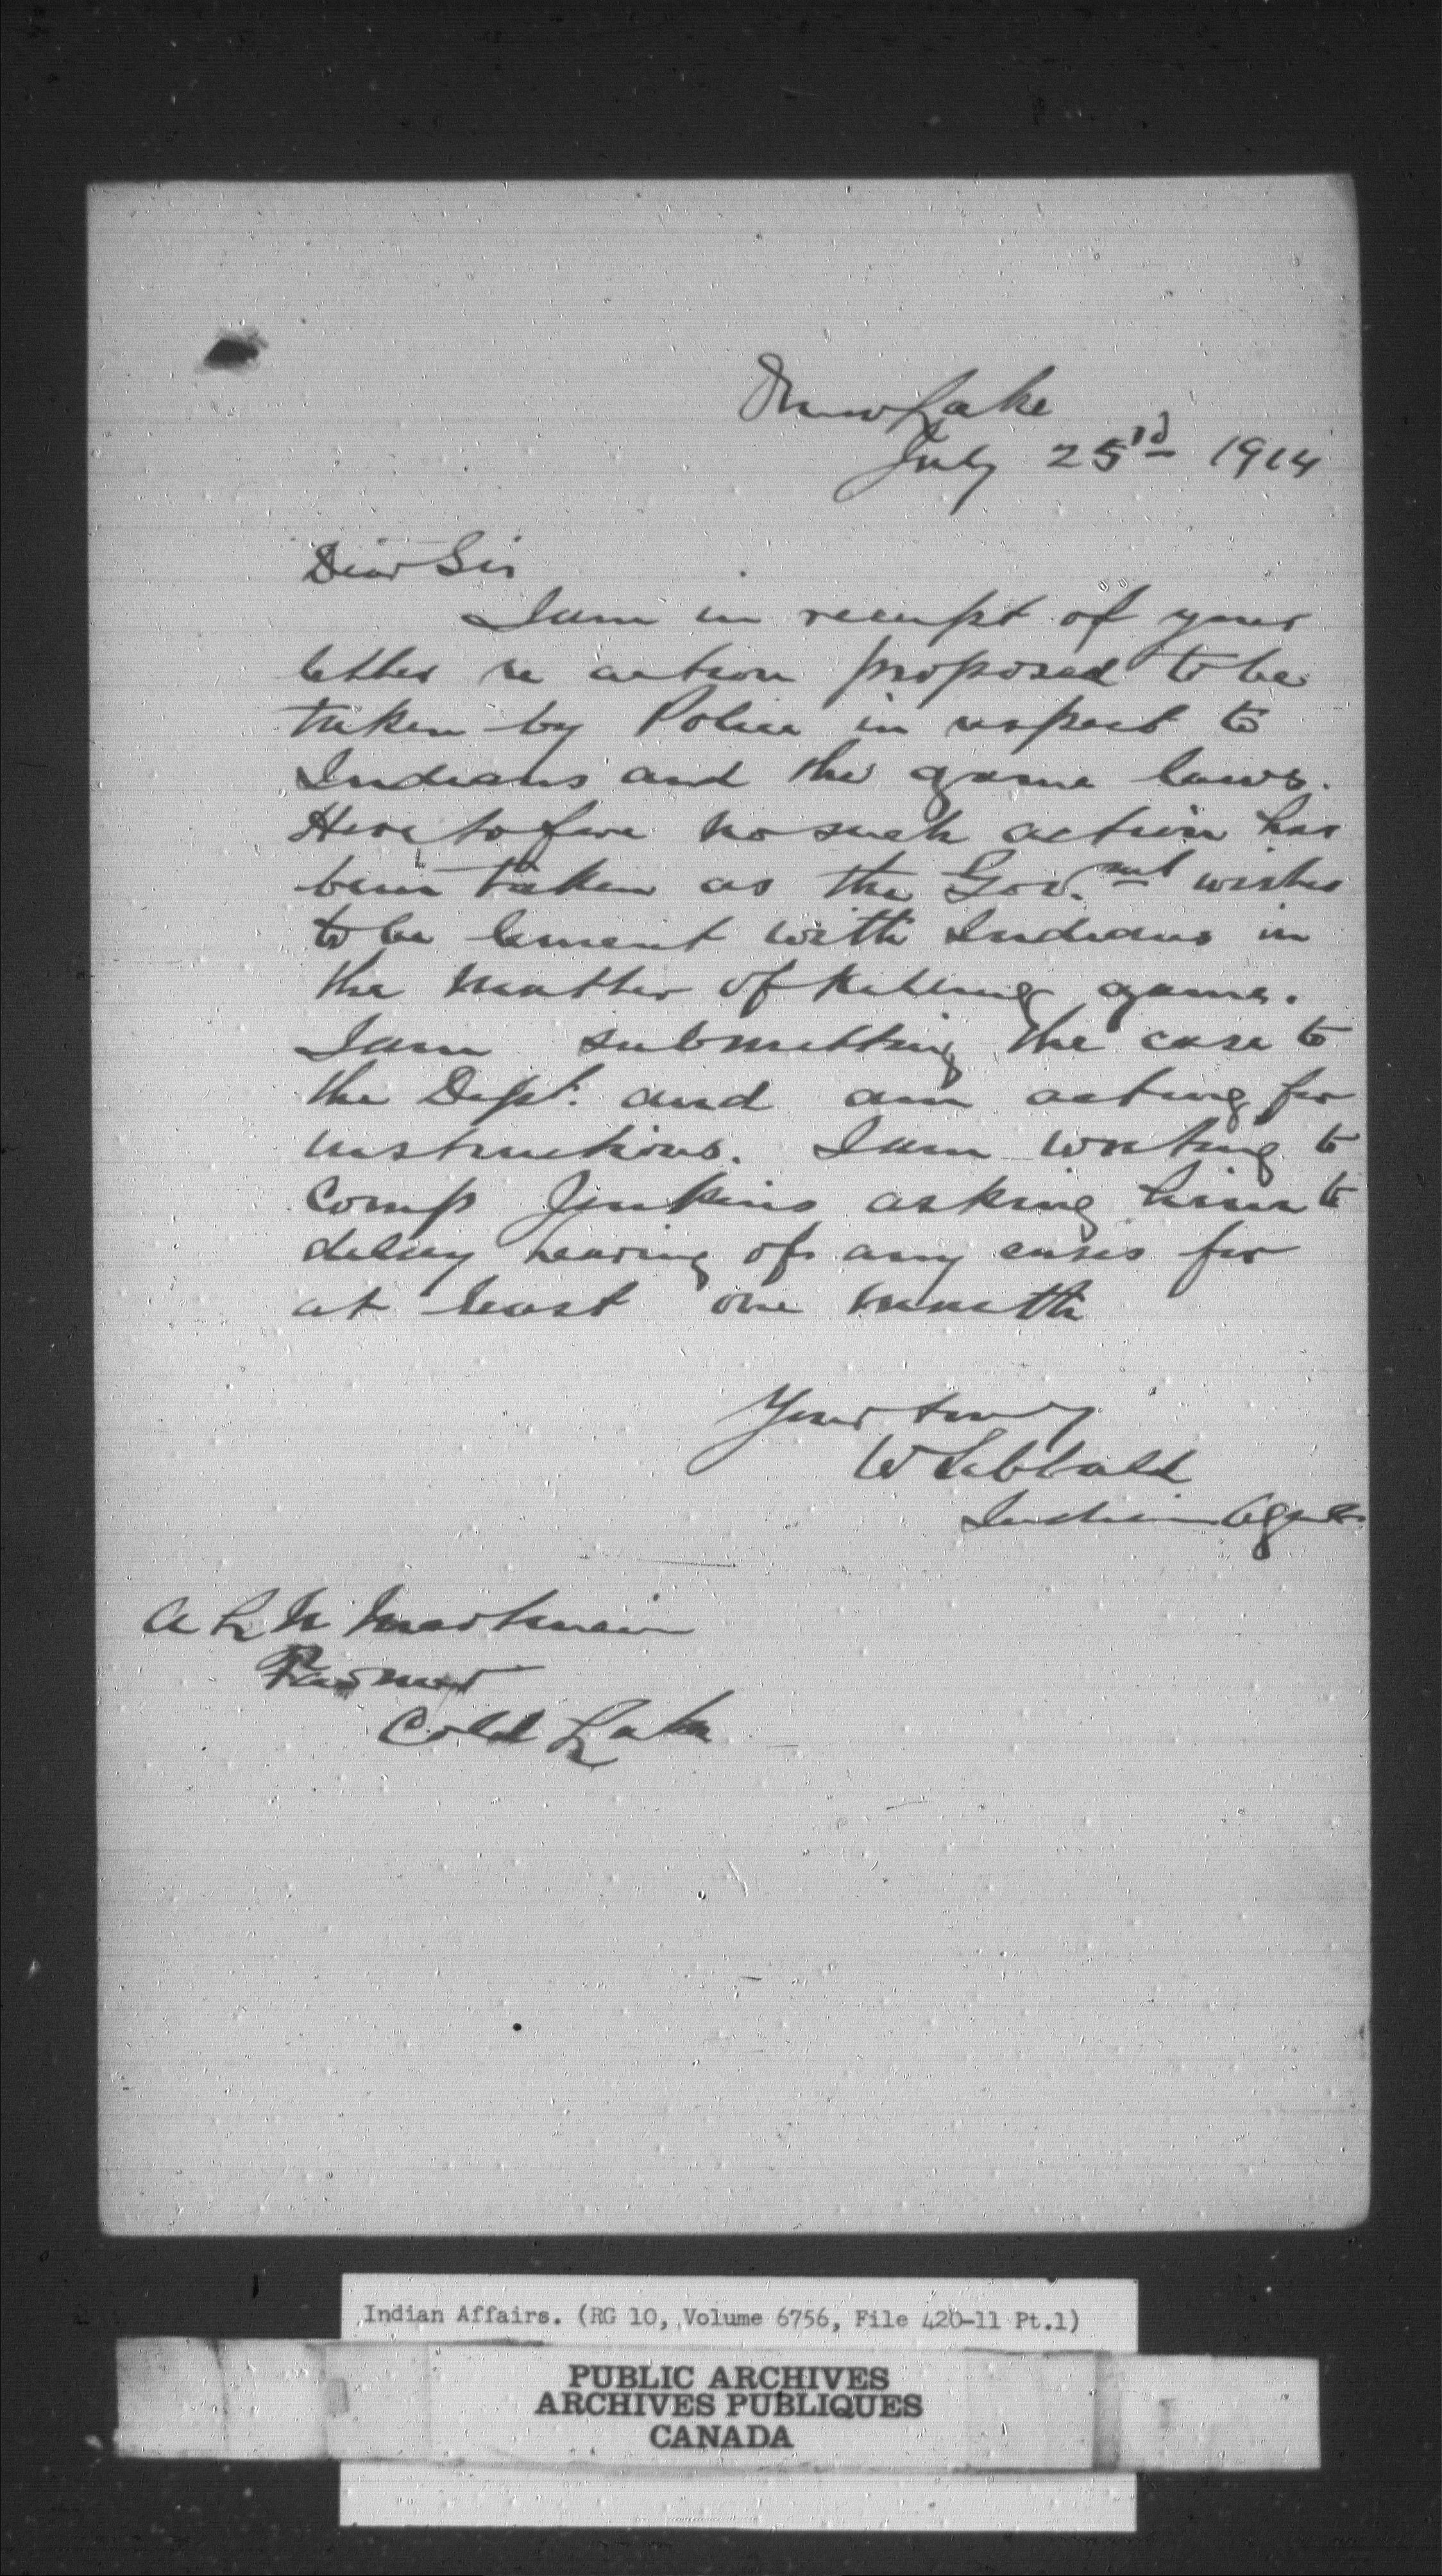 Onion Lake
July 25rd 1914
Dear Sir
I am in receipt of your
letter re action proposed to be
taken by Police in respect to
Indians and the game laws.
Heretofore no such action has
been taken as the Gov.mnt wishes
to be lenient with Indians in
the matter of killing game.
I am submitting the case to
the Dept. and am acting for
instructions. I am writing to
Comp Jenkins asking him to
delay hearing of any cases for
at least one month
Yours truly
W Sibbald
Indian Agent
Farmer
Cold Lake
Indian Affairs. (RG 10, Volume 6756, File 420-11 Pt.1)
PUBLIC ARCHIVES
ARCHIVES PUBLIQUES
CANADA